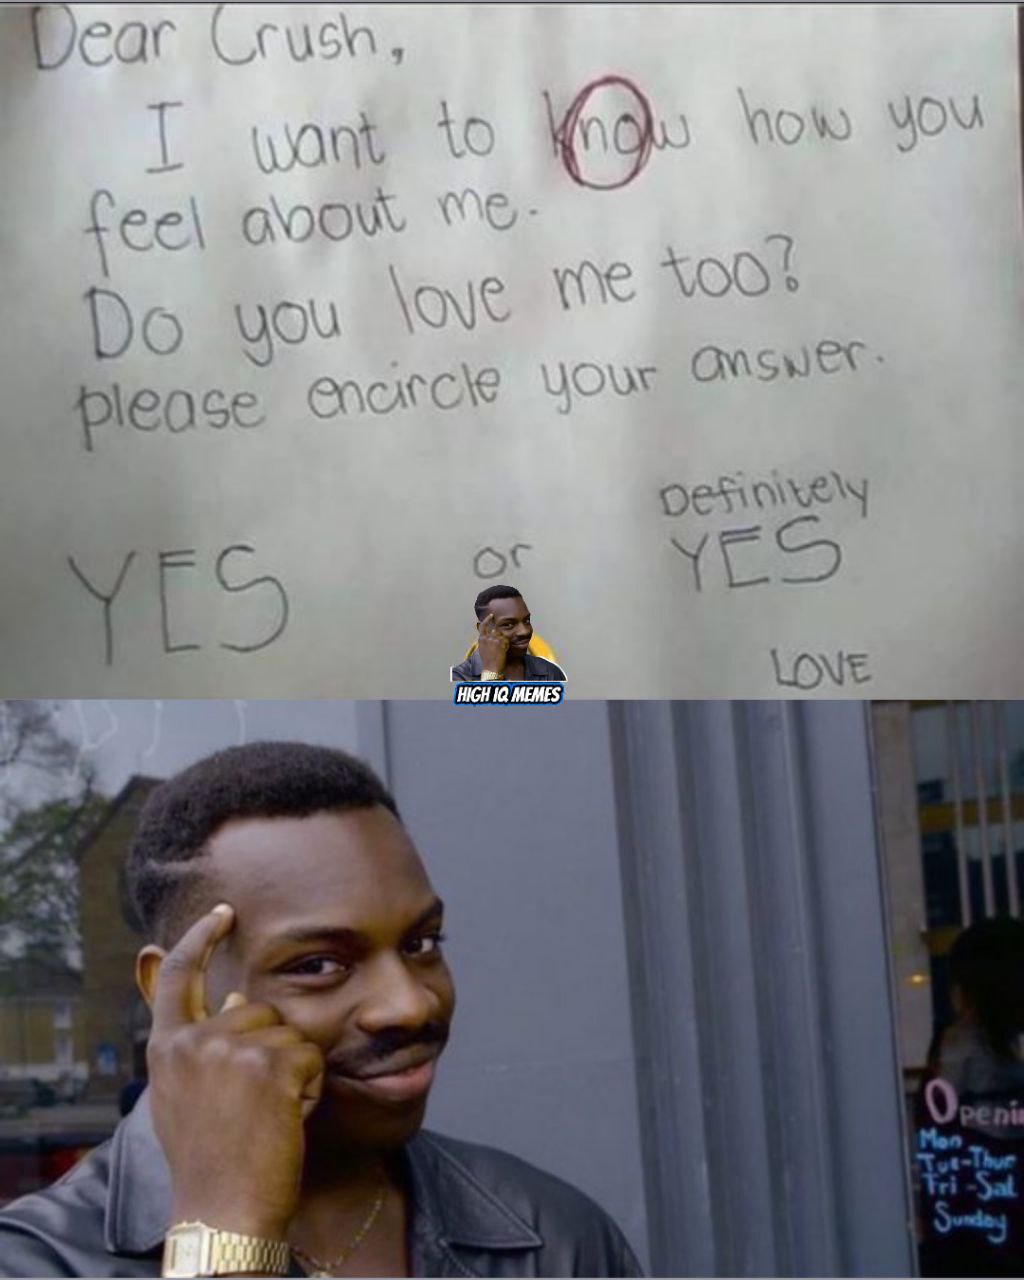 Dear Crush,
I want to know how you
feel about me.
Do you love me too?
please encircle your answer.
Definitely
YES or YES
LOVE
HIGH IQ MEMES
Openin
Mon
Tue-Thur
Fri-Sat
Sunday